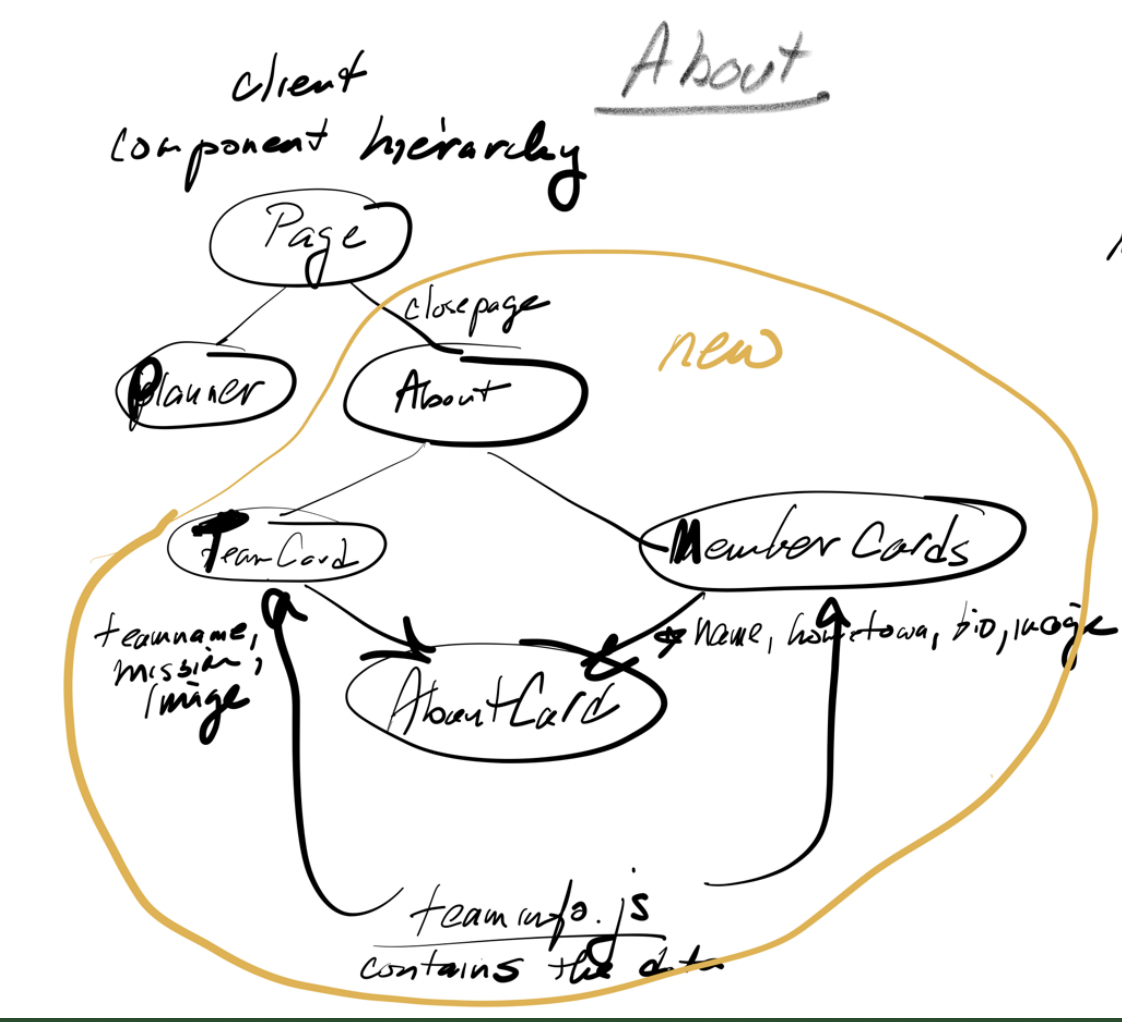 About
client
component hierarchy
Page
closepage
new
Planner
About
TeamCard
Member Cards
teamname,
mission,
image
name, hometown, bio, image
AboutCard
teaminfo.js
contains the data